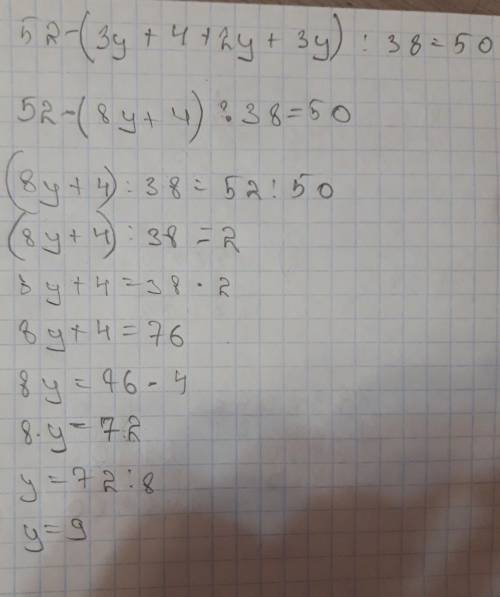 52-(3y + 4 + 2y + 3y) : 38 = 50
52-(8y + 4) : 38 = 50
(8y + 4) : 38 = 52 : 50
(8y + 4) : 38 = 2
8y + 4 = 38 · 2
8y + 4 = 76
8y = 76 - 4
8·y = 72
y = 72 : 8
y = 9